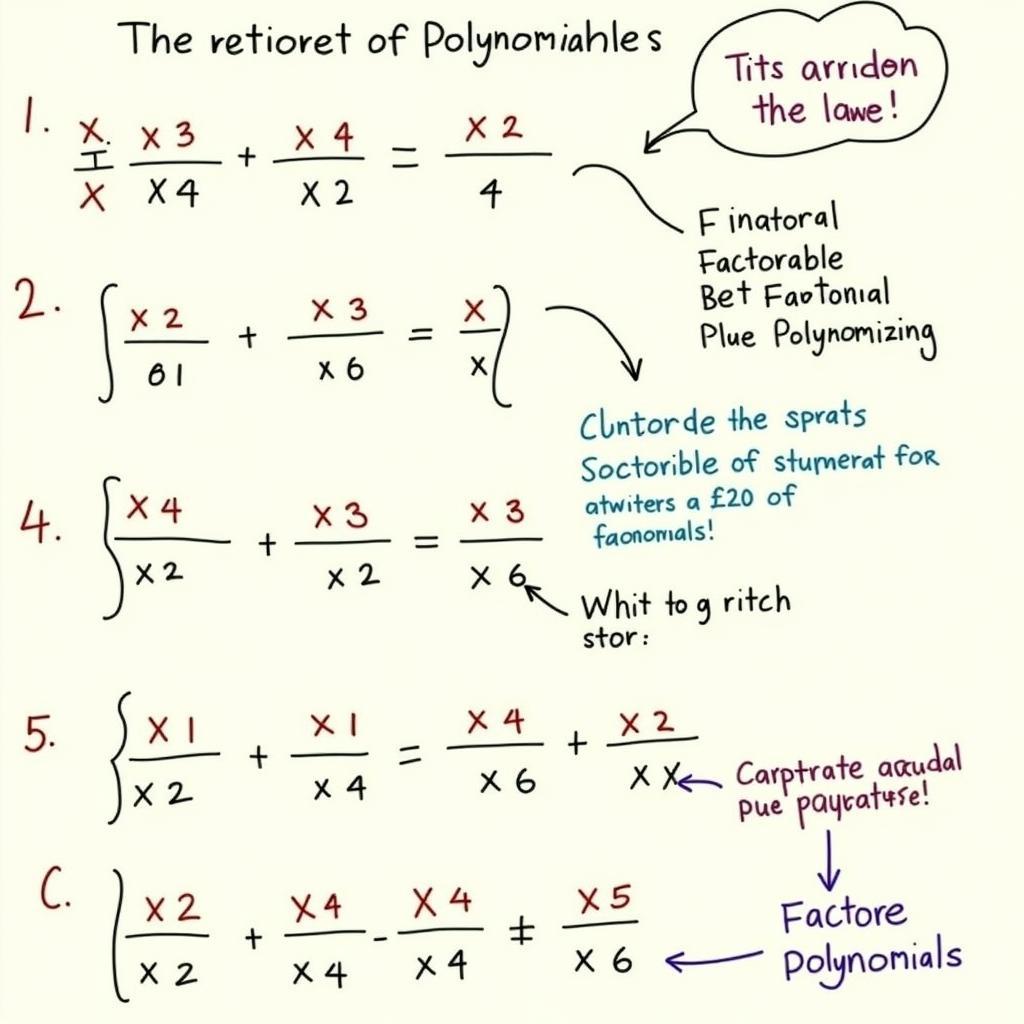 The retioret of Polynomiahles
Tits arridon
the lawe!
1. X. / X  X 3 / X 4 + X 4 / X 2 = X 2 / 4
F inatoral
Factorable
Bet Faotonial
Plue Polynomizing
2. X 2 / 61 + X 3 / x 6 = X / x
Cluntorde the sprats
Soctorible of stumerat for
atwiters a £20 of
faonomials!
4. X 4 / X 2 + X 3 / X 2 = X 3 / X 6
Whit to g ritch
stor:
5. X 1 / X 2 + X 1 / X 4 = X 4 / X 6 + X 2 / X X
Carptrate acudal
pue paycatuse!
C. X 2 / X 2 + X 4 / X 4 - X 4 / X 4 ‡ X 5 / X 6
Factore
Polynomials